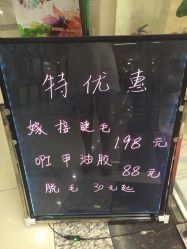 特优惠
嫁接睫毛
198元
吖甲油胶
88元
脱毛 30元起